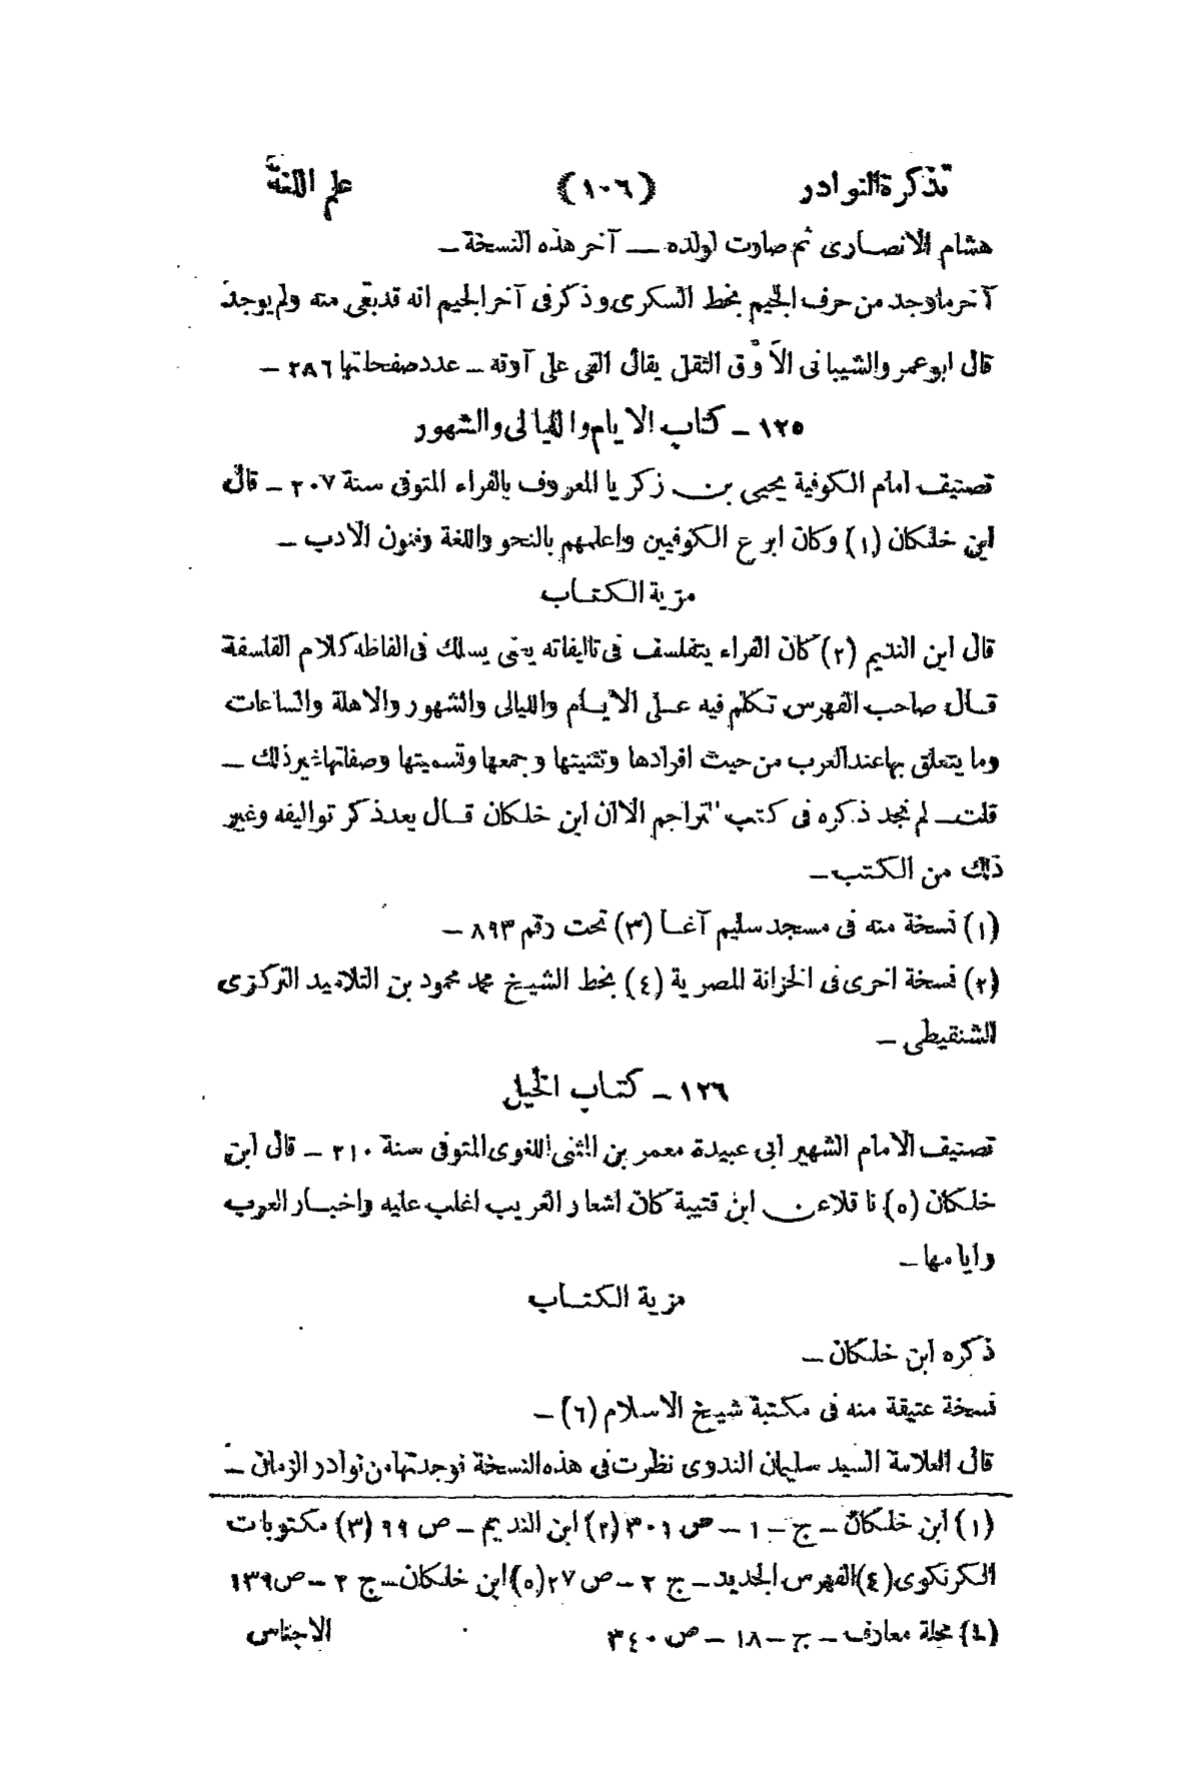 تذكرة النوادر (١٠٦) علم اللغة
هشام الانصارى ثم صارت لولده — آخر هذه النسخة -
آخر ما وجد من حرف الجيم بخط السكرى وذكر فى آخر الجيم انه قد بقى منه ولم يوجد
قال ابو عمرو الشيبانى الأَوْق الثقل يقال القى على آوقه - عدد صفحاتها ٢٨٦ -
١٢٥ - كتاب الايام والليالى والشهور
تصنيف امام الكوفية يحيى بن زكريا المعروف بالفراء المتوفى سنة ٢٠٧ - قال
ابن خلكان (١) وكان ابرع الكوفيين واعلمهم بالنحو واللغة وفنون الادب -
مزية الكتاب
قال ابن النديم (٢) كان الفراء يتفلسف فى تاليفاته يعنى يسلك فى الفاظه كلام الفلسفة
قال صاحب الفهرس تكلم فيه على الايام والليالى والشهور والاهلة والساعات
وما يتعلق بها عند العرب من حيث افرادها وتثنيتها وجمعها وتسميتها وصفاتها غير ذلك -
قلت - لم نجد ذكره فى كتب التراجم الاان ابن خلكان قال بعد ذكر تواليفه وغير
ذلك من الكتب -
(١) نسخة منه فى مسجد سليم آغا (٣) تحت رقم ٨٩٣ -
(٢) نسخة اخرى فى الخزانة المصرية (٤) بخط الشيخ محمد محمود بن التلاميد التركزى
الشنقيطى -
١٢٦ - كتاب الخيل
تصنيف الامام الشهير ابى عبيدة معمر بن المثنى اللغوى المتوفى سنة ٢١٠ - قال ابن
خلكان (٥) ناقلا عن ابن قتيبة كان اشعار الغريب اغلب عليه واخبار العرب
وايامها -
مزية الكتاب
ذكره ابن خلكان -
نسخة عتيقة منه فى مكتبة شيخ الاسلام (٦) -
قال العلامة السيد سليمان الندوى نظرت فى هذه النسخة فوجدتها من نوادر الزمان -
(١) ابن خلكان - ج - ١ - ص ٣٠١ (٢) ابن النديم - ص ٩٩ (٣) مكتوبات
الكرنكوى (٤) الفهرس الجديد - ج ٢ - ص ٢٧ (٥) ابن خلكان - ج ٢ - ص ١٣٩
(٦) مجلة معارف - ج - ١٨ - ص ٣٤٠ الاجناس